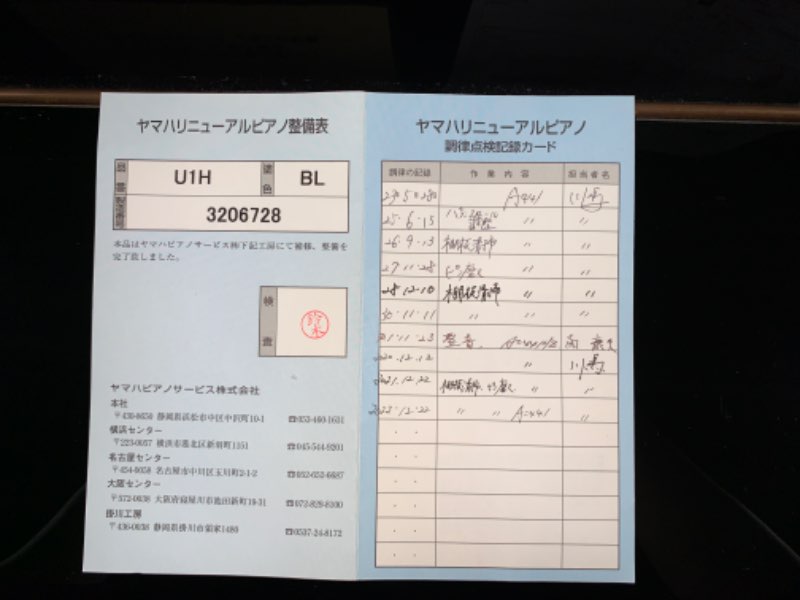 ヤマハリニューアルピアノ整備表
品番 U1H 塗色 BL
製造番号 3206728
本品はヤマハピアノサービス㈱下記工房にて補修、整備を
完了致しました。
検査
ヤマハピアノサービス株式会社
本社
〒430-8650 静岡県浜松市中区中沢町10-1 ☎053-460-1631
横浜センター
〒223-0057 横浜市港北区新羽町1151 ☎045-544-9201
名古屋センター
〒454-0058 名古屋市中川区玉川町2-1-2 ☎052-652-6687
大阪センター
〒572-0038 大阪府寝屋川市池田新町19-31 ☎072-829-8100
掛川工房
〒436-0038 静岡県掛川市領家1480 ☎0537-24-8172
ヤマハリニューアルピアノ
調律点検記録カード
調律の記録 作業内容 担当者名
A=441
25・6・15 〃 〃
26・9・13 棚板清掃 〃 〃
27・11・28 〃 〃
28・12・10 棚板清掃 〃 〃
30・11・11 〃 〃 〃
11・23 整音
12・12 〃
2021.12.22 棚板清掃 〃 〃
2022・12・22 〃 〃 A=441 〃